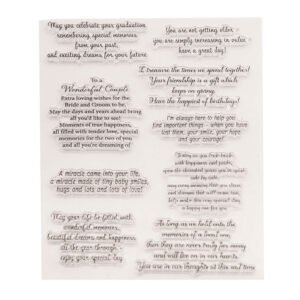 May you celebrate your graduation
remembering special memories
from your past,
and exciting dreams for your future
You are not getting older -
you are simply increasing in value -
have a great day!
To a
Wonderful Couple
Extra loving wishes for the
Bride and Groom to be,
May the days and years ahead bring
all you'd like to see!
Memories of true happiness,
all filled with tender love, special
memories for the two of you
and all you're dreaming of
I treasure the times we spend together!
Your friendship is a gift which
keeps on giving,
Have the happiest of birthdays!
I'm always here to help you
find important things - when you have
lost them, your smile, your hope
and your courage!
A miracle came into your life,
a miracle made of tiny baby smiles,
hugs and lots and lots of love!
Today as you look back
with happiness and pride,
upon the
special day
May your life be filled with
wonderful memories,
beautiful dreams and happiness
all the year through -
enjoy your special day
As long as we hold onto
the memories of a loved one,
then they are never truly far away
and will live on in our hearts
You are in our thoughts at this sad time